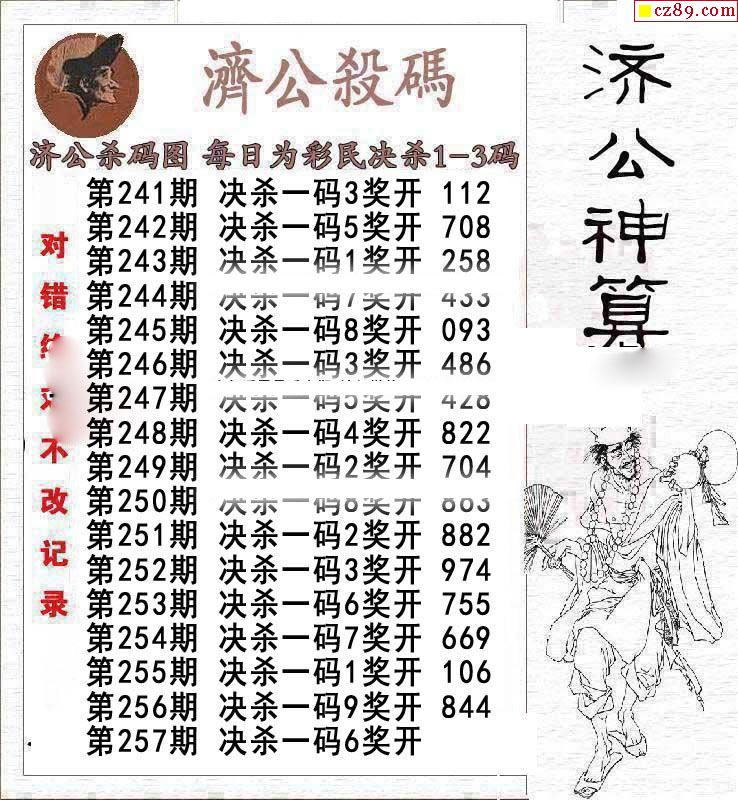 cz89.com
濟公殺碼
济公杀码图 每日为彩民决杀1-3码
第241期 决杀一码3奖开 112
第242期 决杀一码5奖开 708
第243期 决杀一码1奖开 258
第244期 决杀一码7奖开 433
第245期 决杀一码8奖开 093
第246期 决杀一码3奖开 486
第247期 决杀一码5奖开 428
第248期 决杀一码4奖开 822
第249期 决杀一码2奖开 704
第250期 决杀一码8奖开 863
第251期 决杀一码2奖开 882
第252期 决杀一码3奖开 974
第253期 决杀一码6奖开 755
第254期 决杀一码7奖开 669
第255期 决杀一码1奖开 106
第256期 决杀一码9奖开 844
第257期 决杀一码6奖开
对错绝对不改记录
济公神算